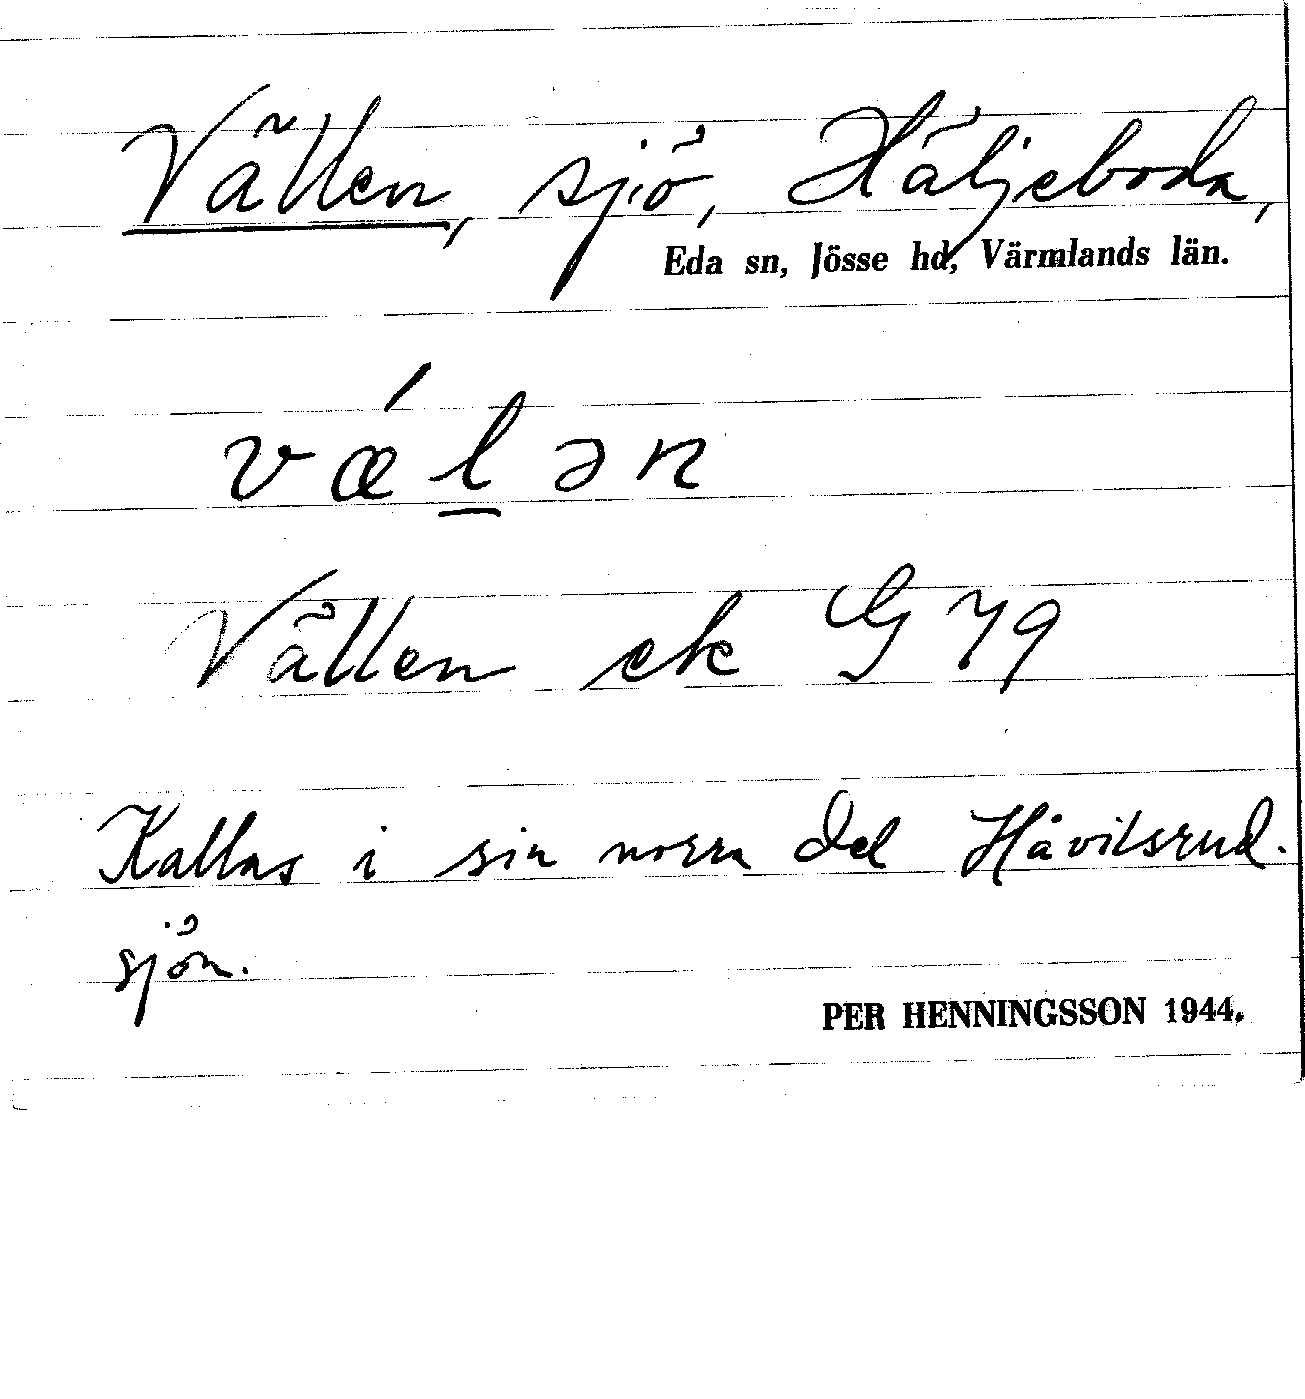 Vällen, sjö, Häljeboda,
Eda sn, Jösse hd, Värmlands län.
vǽl̲ən
Vällen ek G 79
Kallas i sin norra del Håvilsrud-
sjön.
PER HENNINGSSON 1944.